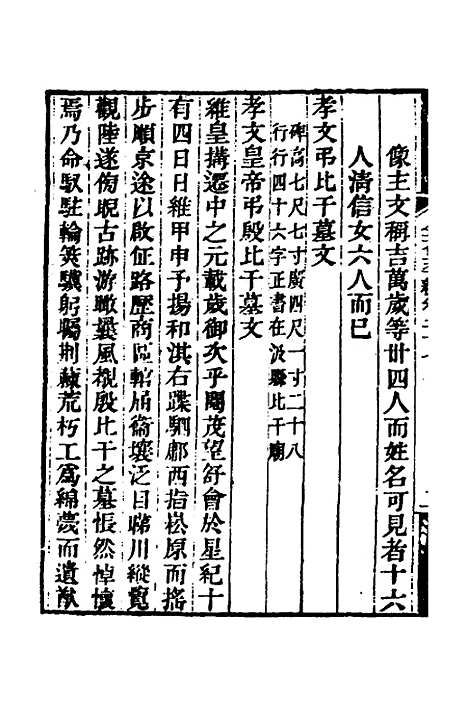 像主文稱吉萬歲等丗四人而姓名可見者十六
人清信女六人而已
孝文弔比干墓文
碑高七尺七寸廣四尺一寸二十八
行行四十六字正書在汲縣比干廟
孝文皇帝弔殷比干墓文
維皇搆遷中之元載歲御次乎閹茂望舒會於星紀十
有四日日維甲申予揚和淇右蹀駟鄘西指崧原而搖
步順京途以啟征路歷商區輨周衞襄泛目睇川縱覽
觀陸遂傍睨古跡游瞰曩風覩殷比干之墓悵然悼懷
焉乃命馭駐輪策驥躬矚荆蕀荒朽工為綿蔑而遺猷